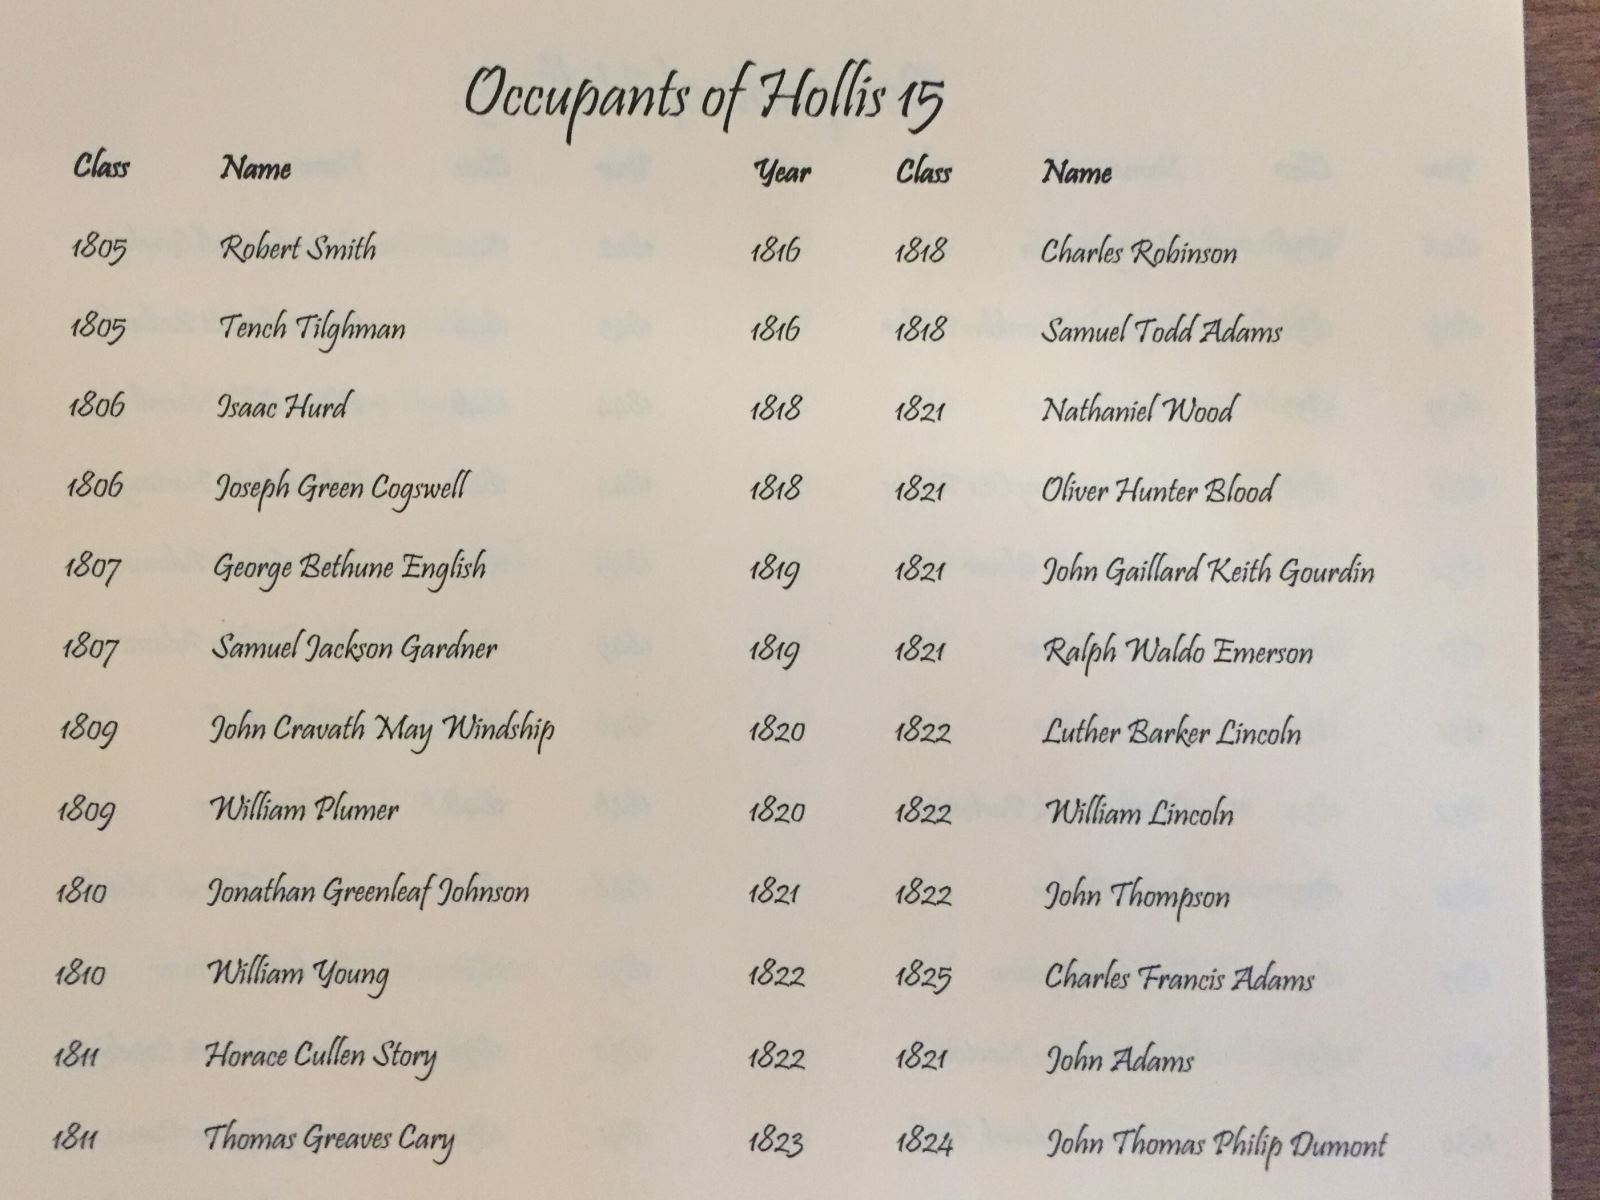 Occupants of Hollis 15
Class Name Year Class Name
1805 Robert Smith 1816 1818 Charles Robinson
1805 Tench Tilghman 1816 1818 Samuel Todd Adams
1806 Isaac Hurd 1818 1821 Nathaniel Wood
1806 Joseph Green Cogswell 1818 1821 Oliver Hunter Blood
1807 George Bethune English 1819 1821 John Gaillard Keith Gourdin
1807 Samuel Jackson Gardner 1819 1821 Ralph Waldo Emerson
1809 John Cravath May Windship 1820 1822 Luther Barker Lincoln
1809 William Plumer 1820 1822 William Lincoln
1810 Jonathan Greenleaf Johnson 1821 1822 John Thompson
1810 William Young 1822 1825 Charles Francis Adams
1811 Horace Cullen Story 1822 1821 John Adams
1811 Thomas Greaves Cary 1823 1824 John Thomas Philip Dumont